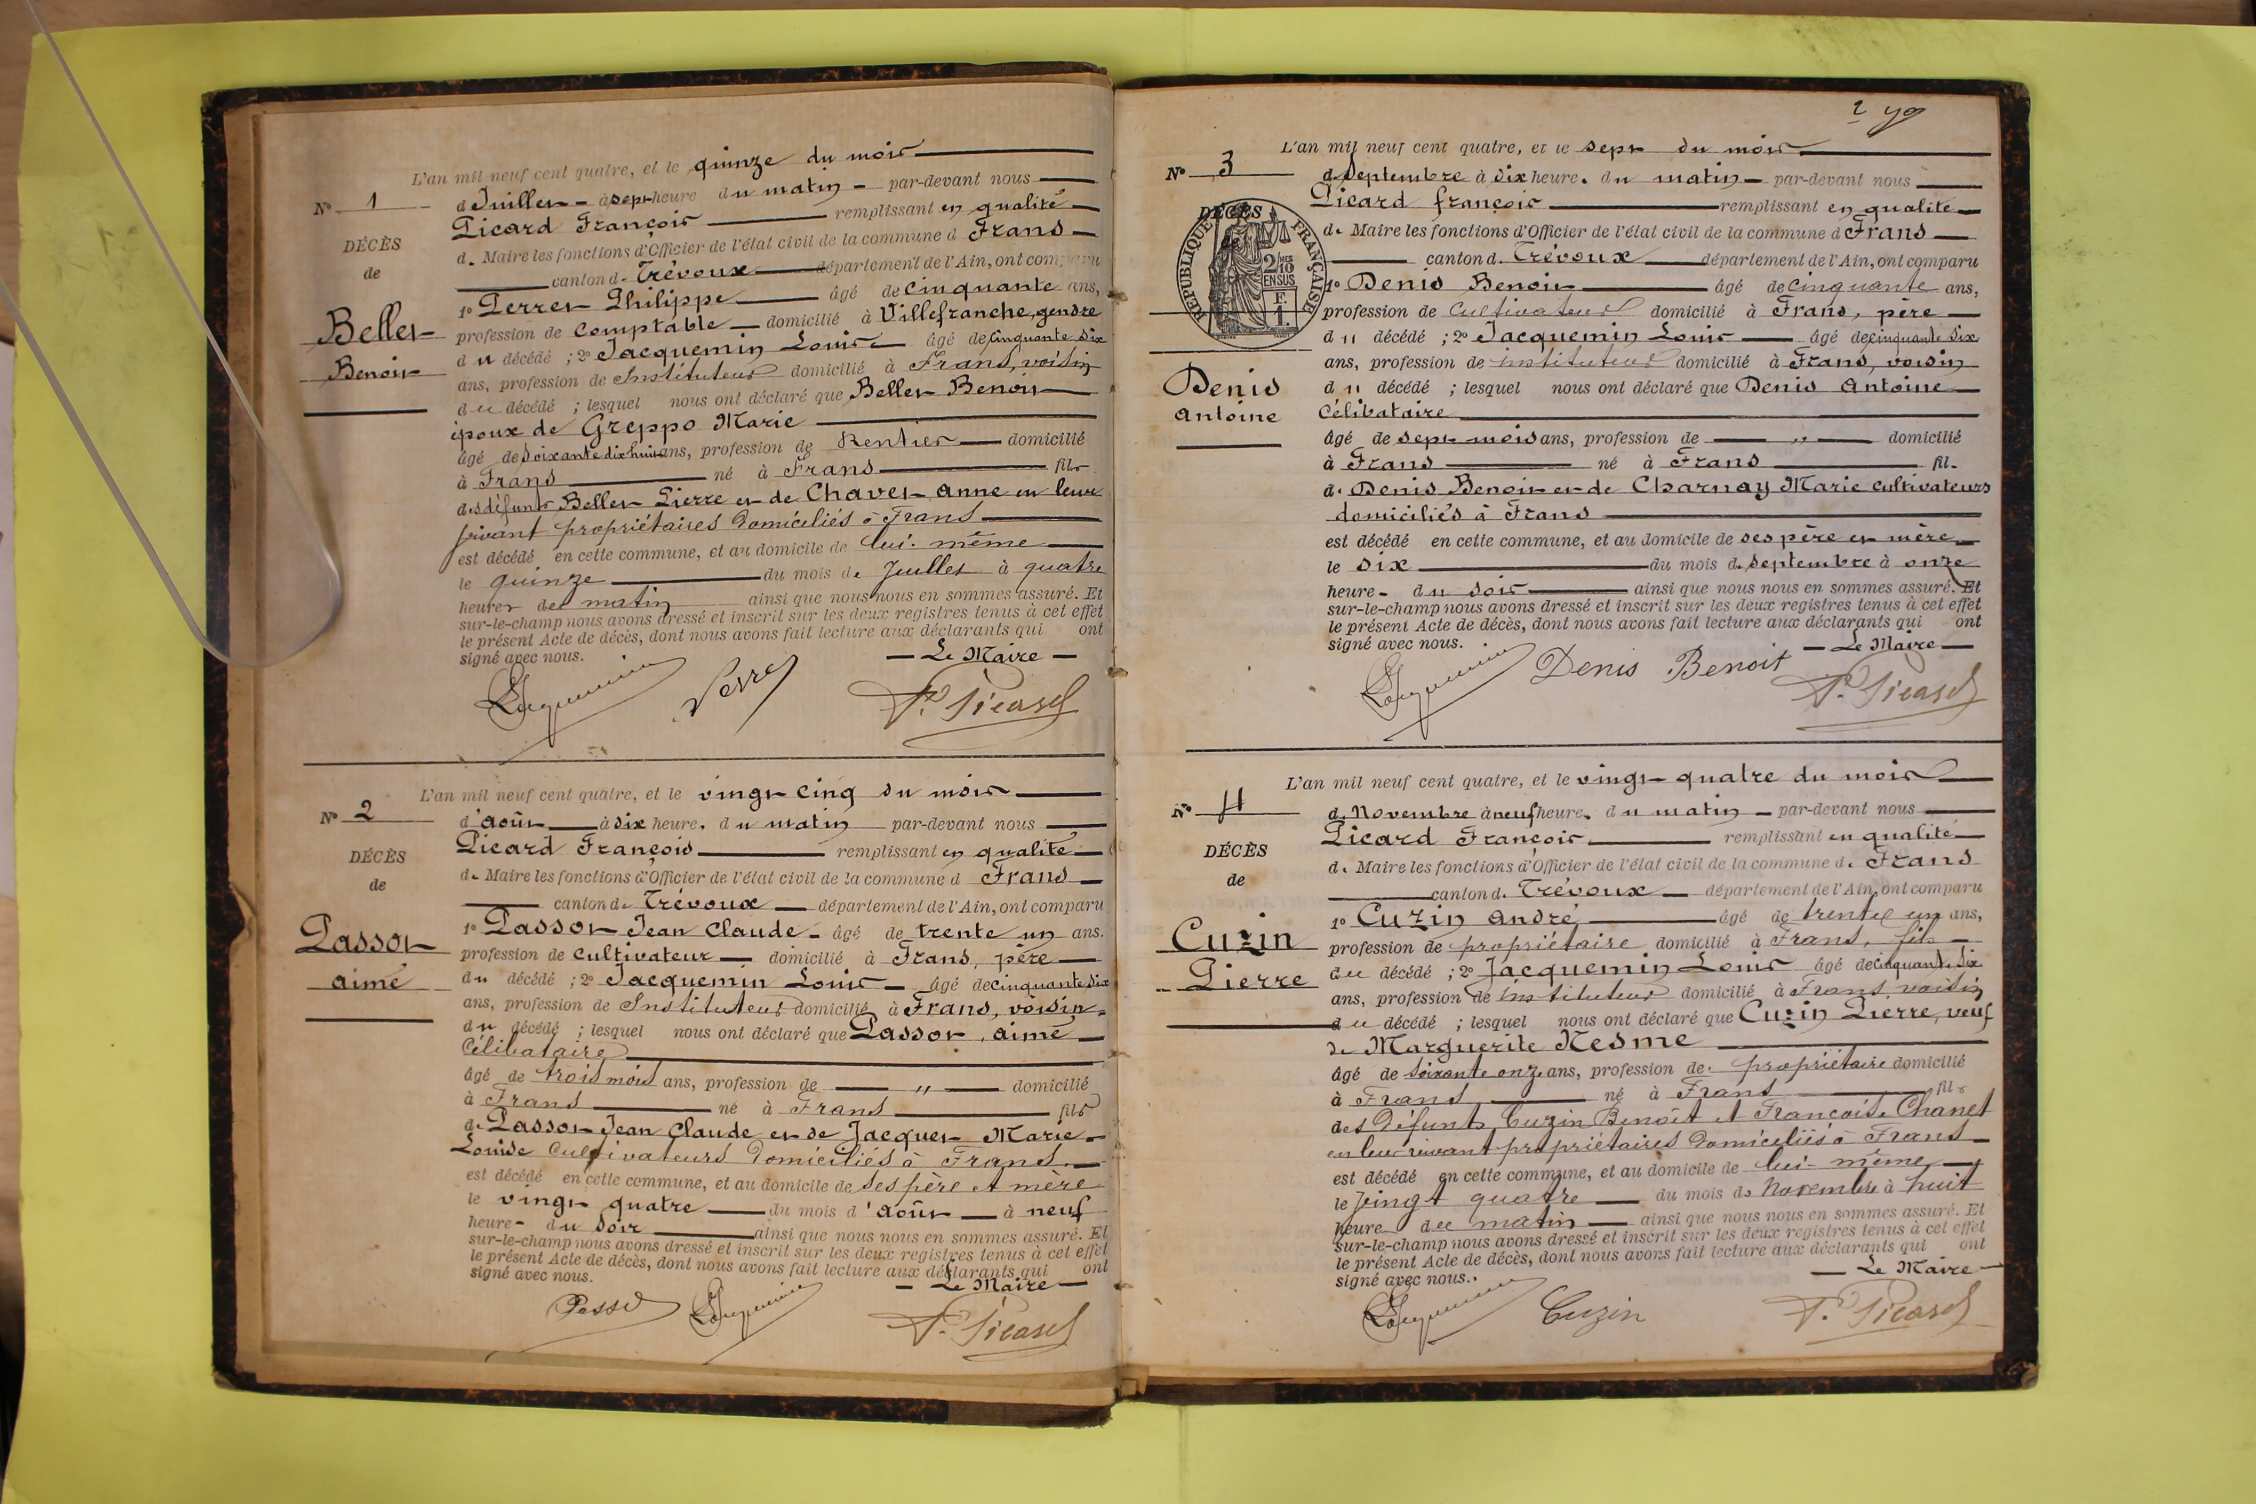 L'an mil neuf cent quatre, et le quinze du mois
N° 1
de Juillet à sept heure du matin par-devant nous
Picard François remplissant en qualité
DÉCÈS
de Maire les fonctions d'Officier de l'état civil de la commune d Frans
de
canton de Trévoux département de l'Ain, ont comparu
1° Perret Philippe âgé de cinquante ans,
Bellet
profession de comptable domicilié à Villefranche, gendre
du décédé ; 2° Jacquemin Louis âgé de cinquante six
Benoit
ans, profession de Instituteur domicilié à Frans, voisin
du décédé ; lesquel nous ont déclaré que Bellet Benoit
époux de Greppo Marie
âgé de soixante dix huit ans, profession de Rentier domicilié
à Frans né à Frans fils
des défunts Bellet Pierre et de Chavet Anne en leur
vivant propriétaires domiciliés à Frans
est décédé en cette commune, et au domicile de lui-même
le quinze du mois de Juillet à quatre
heures du matin ainsi que nous nous en sommes assuré. Et
sur-le-champ nous avons dressé et inscrit sur les deux registres tenus à cet effet
le présent Acte de décès, dont nous avons fait lecture aux déclarants qui ont
signé avec nous.
Le Maire
Jacquemin Perret F. Picard
L'an mil neuf cent quatre, et le vingt cinq du mois
N° 2
d'août à dix heure. du matin par-devant nous
Picard François remplissant en qualité
DÉCÈS
de Maire les fonctions d'Officier de l'état civil de la commune d Frans
de
canton de Trévoux département de l'Ain, ont comparu
1° Passot Jean Claude âgé de trente un ans.
Passot
profession de cultivateur domicilié à Frans, père
aimé
du décédé ; 2° Jacquemin Louis âgé de cinquante six
ans, profession de Instituteur domicilié à Frans, voisin
du décédé ; lesquel nous ont déclaré que Passot, aimé
Célibataire
âgé de trois mois ans, profession de " domicilié
à Frans né à Frans fils
de Passot Jean Claude et de Jacquet Marie
Louise Cultivateurs domiciliés à Frans
est décédé en cette commune, et au domicile de ses père et mère
le vingt quatre du mois d'août à neuf
heure du soir ainsi que nous nous en sommes assuré. Et
sur-le-champ nous avons dressé et inscrit sur les deux registres tenus à cet effet
le présent Acte de décès, dont nous avons fait lecture aux déclarants qui ont
signé avec nous.
Le Maire
Passot Jacquemin F. Picard
2
L'an mil neuf cent quatre, et le sept du mois
N° 3
de Septembre à dix heure. du matin par-devant nous
Picard françois remplissant en qualité
DÉCÈS
RÉPUBLIQUE FRANÇAISE
2/10 EN SUS
F.
1.
de Maire les fonctions d'Officier de l'état civil de la commune d Frans
canton d. Trévoux département de l'Ain, ont comparu
1° Denis Benoit âgé de cinquante ans,
profession de Cultivateur domicilié à Frans, père
du décédé ; 2° Jacquemin Louis âgé de cinquante six
ans, profession de instituteur domicilié à Frans, voisin
Denis
du décédé ; lesquel nous ont déclaré que Denis Antoine
Antoine
Célibataire
âgé de sept mois ans, profession de " domicilié
à Frans né à Frans fil.
de Denis Benoit et de Charnay Marie Cultivateurs
domiciliés à Frans
est décédé en cette commune, et au domicile de ses père et mère
le six du mois de septembre à onze
heure du soir ainsi que nous nous en sommes assuré. Et
sur-le-champ nous avons dressé et inscrit sur les deux registres tenus à cet effet
le présent Acte de décès, dont nous avons fait lecture aux déclarants qui ont
signé avec nous.
Le Maire
Jacquemin Denis Benoit F. Picard
L'an mil neuf cent quatre, et le vingt quatre du mois
N° 4
d. Novembre à neuf heure. du matin par-devant nous
Picard François remplissant en qualité
DÉCÈS
d. Maire les fonctions d'Officier de l'état civil de la commune d. Frans
de
canton d. Trévoux département de l'Ain, ont comparu
1° Cuzin André âgé de trente un ans,
Cuzin
profession de propriétaire domicilié à Frans, fils
du décédé ; 2° Jacquemin Louis âgé de cinquante six
Pierre
ans, profession de instituteur domicilié à Frans, voisin
du décédé ; lesquel nous ont déclaré que Cuzin Pierre, veuf
de Marguerite Nesme
âgé de soixante onze ans, profession de propriétaire domicilié
à Frans né à Frans fils
des défunts Cuzin Benoît et Françoise Chanet
en leur vivant propriétaires domiciliés à Frans
est décédé en cette commune, et au domicile de lui-même
le vingt quatre du mois de Novembre à huit
heure du matin ainsi que nous nous en sommes assuré. Et
sur-le-champ nous avons dressé et inscrit sur les deux registres tenus à cet effet
le présent Acte de décès, dont nous avons fait lecture aux déclarants qui ont
signé avec nous.
Le Maire
Jacquemin Cuzin F. Picard